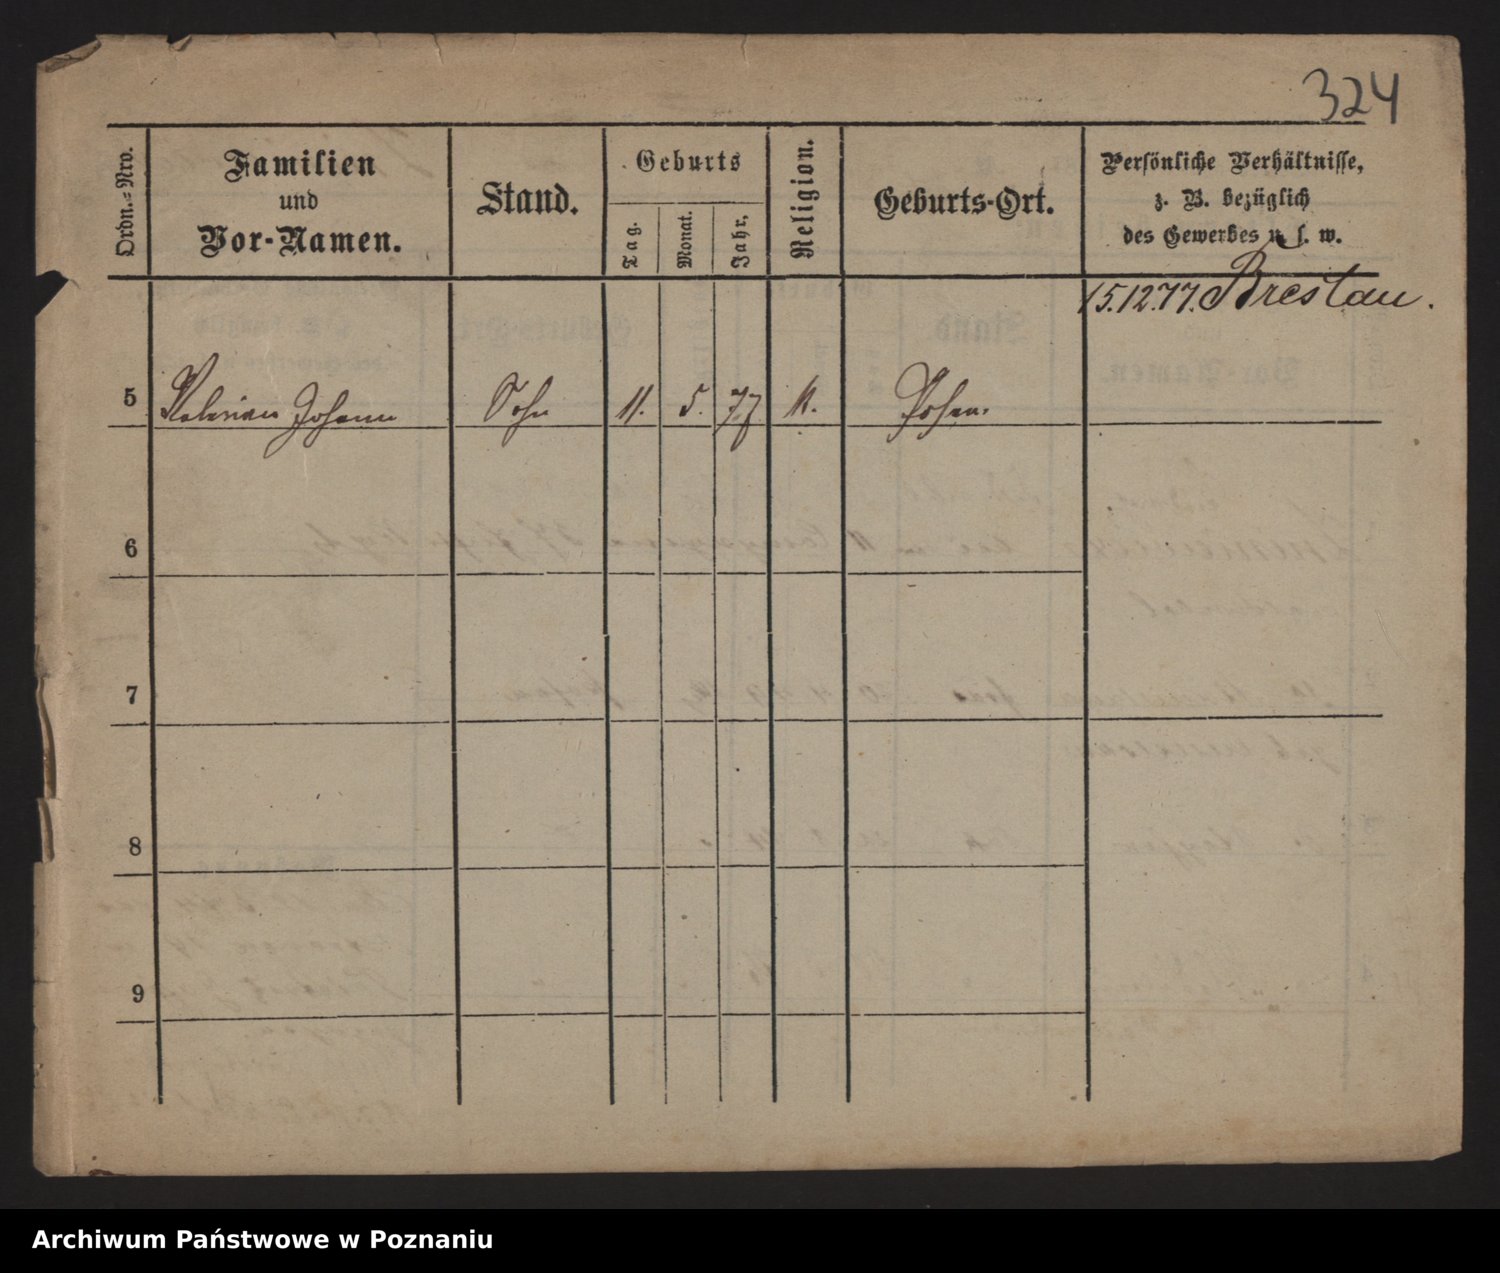 324
Ordn.=Nro.
Familien
und
Vor-Namen.
Stand.
Geburts
Tag.
Monat.
Jahr.
Religion.
Geburts-Ort.
Persönliche Verhältnisse,
z. B. bezüglich
des Gewerbes u. s. w.
15.12.77. Breslau.
5 Valerian Johann Sohn 11. 5. 77 k. Posen.
6
7
8
9
Archiwum Państwowe w Poznaniu